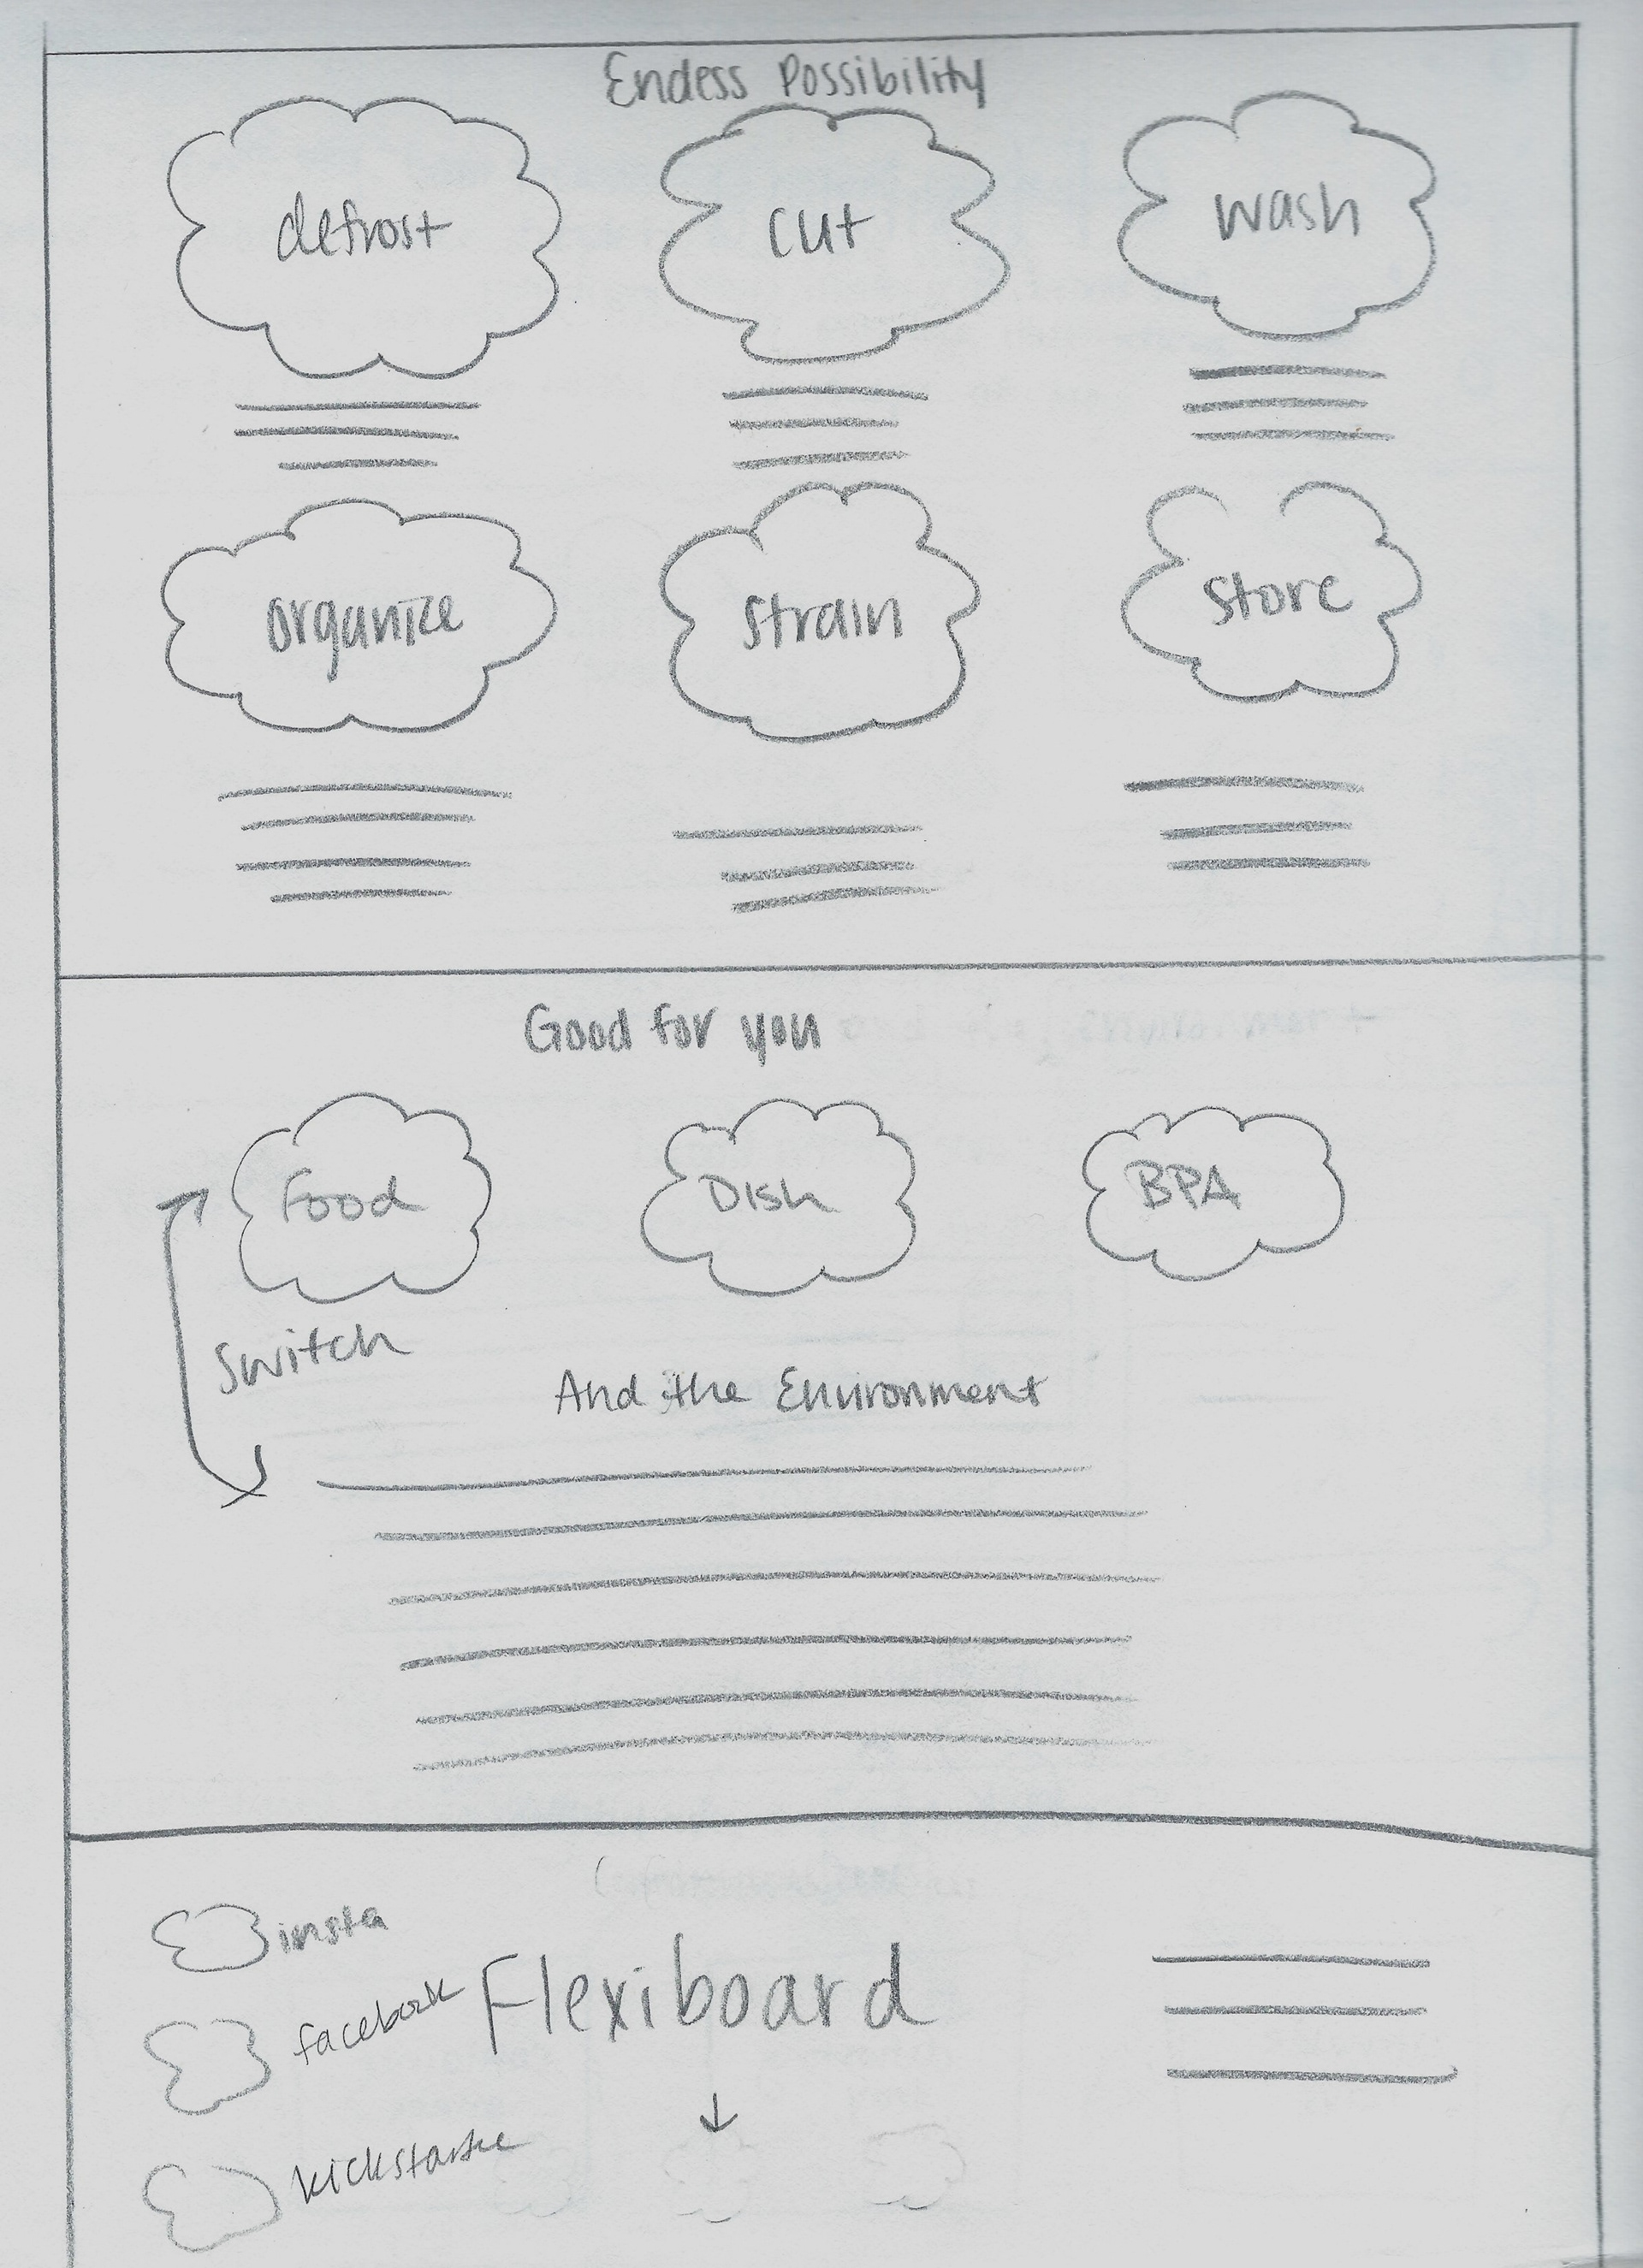 Endess Possibility
defrost
cut
wash
organize
strain
store
Good for you
Food
Dish
BPA
Switch
And the Environment
insta
facebook
Flexiboard
kickstarter